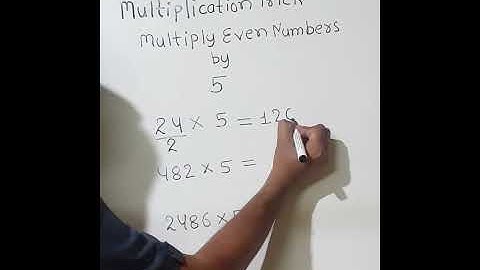 Multiplication Trick
Multiply Even Numbers
by
5
24/2 × 5 = 12
482 × 5 =
2486 ×